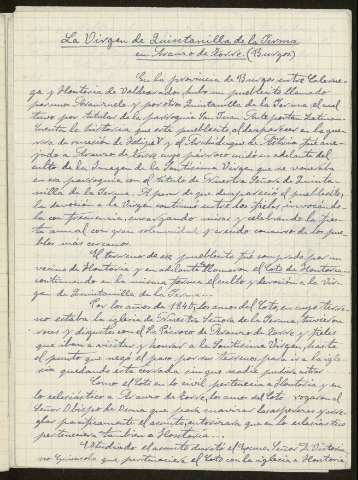 La Virgen de Quintanilla de la Serma
en Arauzo de Torre. (Burgos)
En la provincia de Burgos entre Calerue-
ga y Hontoria de Valdearados hubo un pueblecito llamado
por unos Aranzuelo y por otros Quintanilla de la Serma el cual
tuvo por titular de la parroquia San Juan Ante portam Latinam
Cuenta la historia que este pueblecito al desaparecer en la gue-
rra de sucesión de Felipe V y el Archiduque de Austria fué ane-
jado a Arauzo de Torre cuyo párroco cuidó en adelante del
culto de la Imagen de la Santísima Virgen que se veneraba
en esa parroquia con el título de Nuestra Señora de Quinta-
nilla de la Serma. A pesar de que desapareció el pueblecito,
la devoción a la Virgen continuó entre los fieles invocándo-
la con frecuencia, encargando misas y celebrando la fies-
ta anual con gran solemnidad y siendo concurso de los pue-
blos más cercanos.
El terreno de ese pueblecito fué comprado por un
vecino de Hontoria y en adelante llamaron el Coto de Hontoria
continuando en la misma forma el culto y devoción a la Vir-
gen de Quintanilla de la Serma.
Por los años de 1845, los amos del Coto, en cuyo terre-
no estaba la iglesia de Nuestra Señora de la Serma, tuvieron
voces y disgustos con el Sr. Párroco de Arauzo de Torre, y fieles
que iban a visitar y honrar a la Santísima Virgen, hasta
el punto que negó el paso por sus terrenos para ir a la igle-
sia quedando esta cerrada sin que nadie pudiera entrar.
Como el Coto en lo civil pertenecía a Hontoria y en
lo eclesiástico a Arauzo de Torre, los amos del Coto rogaron al
Señor Obispo de Osma que para suavizar las asperezas y arre-
glar pacíficamente el asunto, autorizara que en lo eclesiástico
perteneciera también a Hontoria...
Estudiado el asunto decretó el Excmo. Señor D. Victoria-
no que perteneciera el Coto con la iglesia a Hontoria